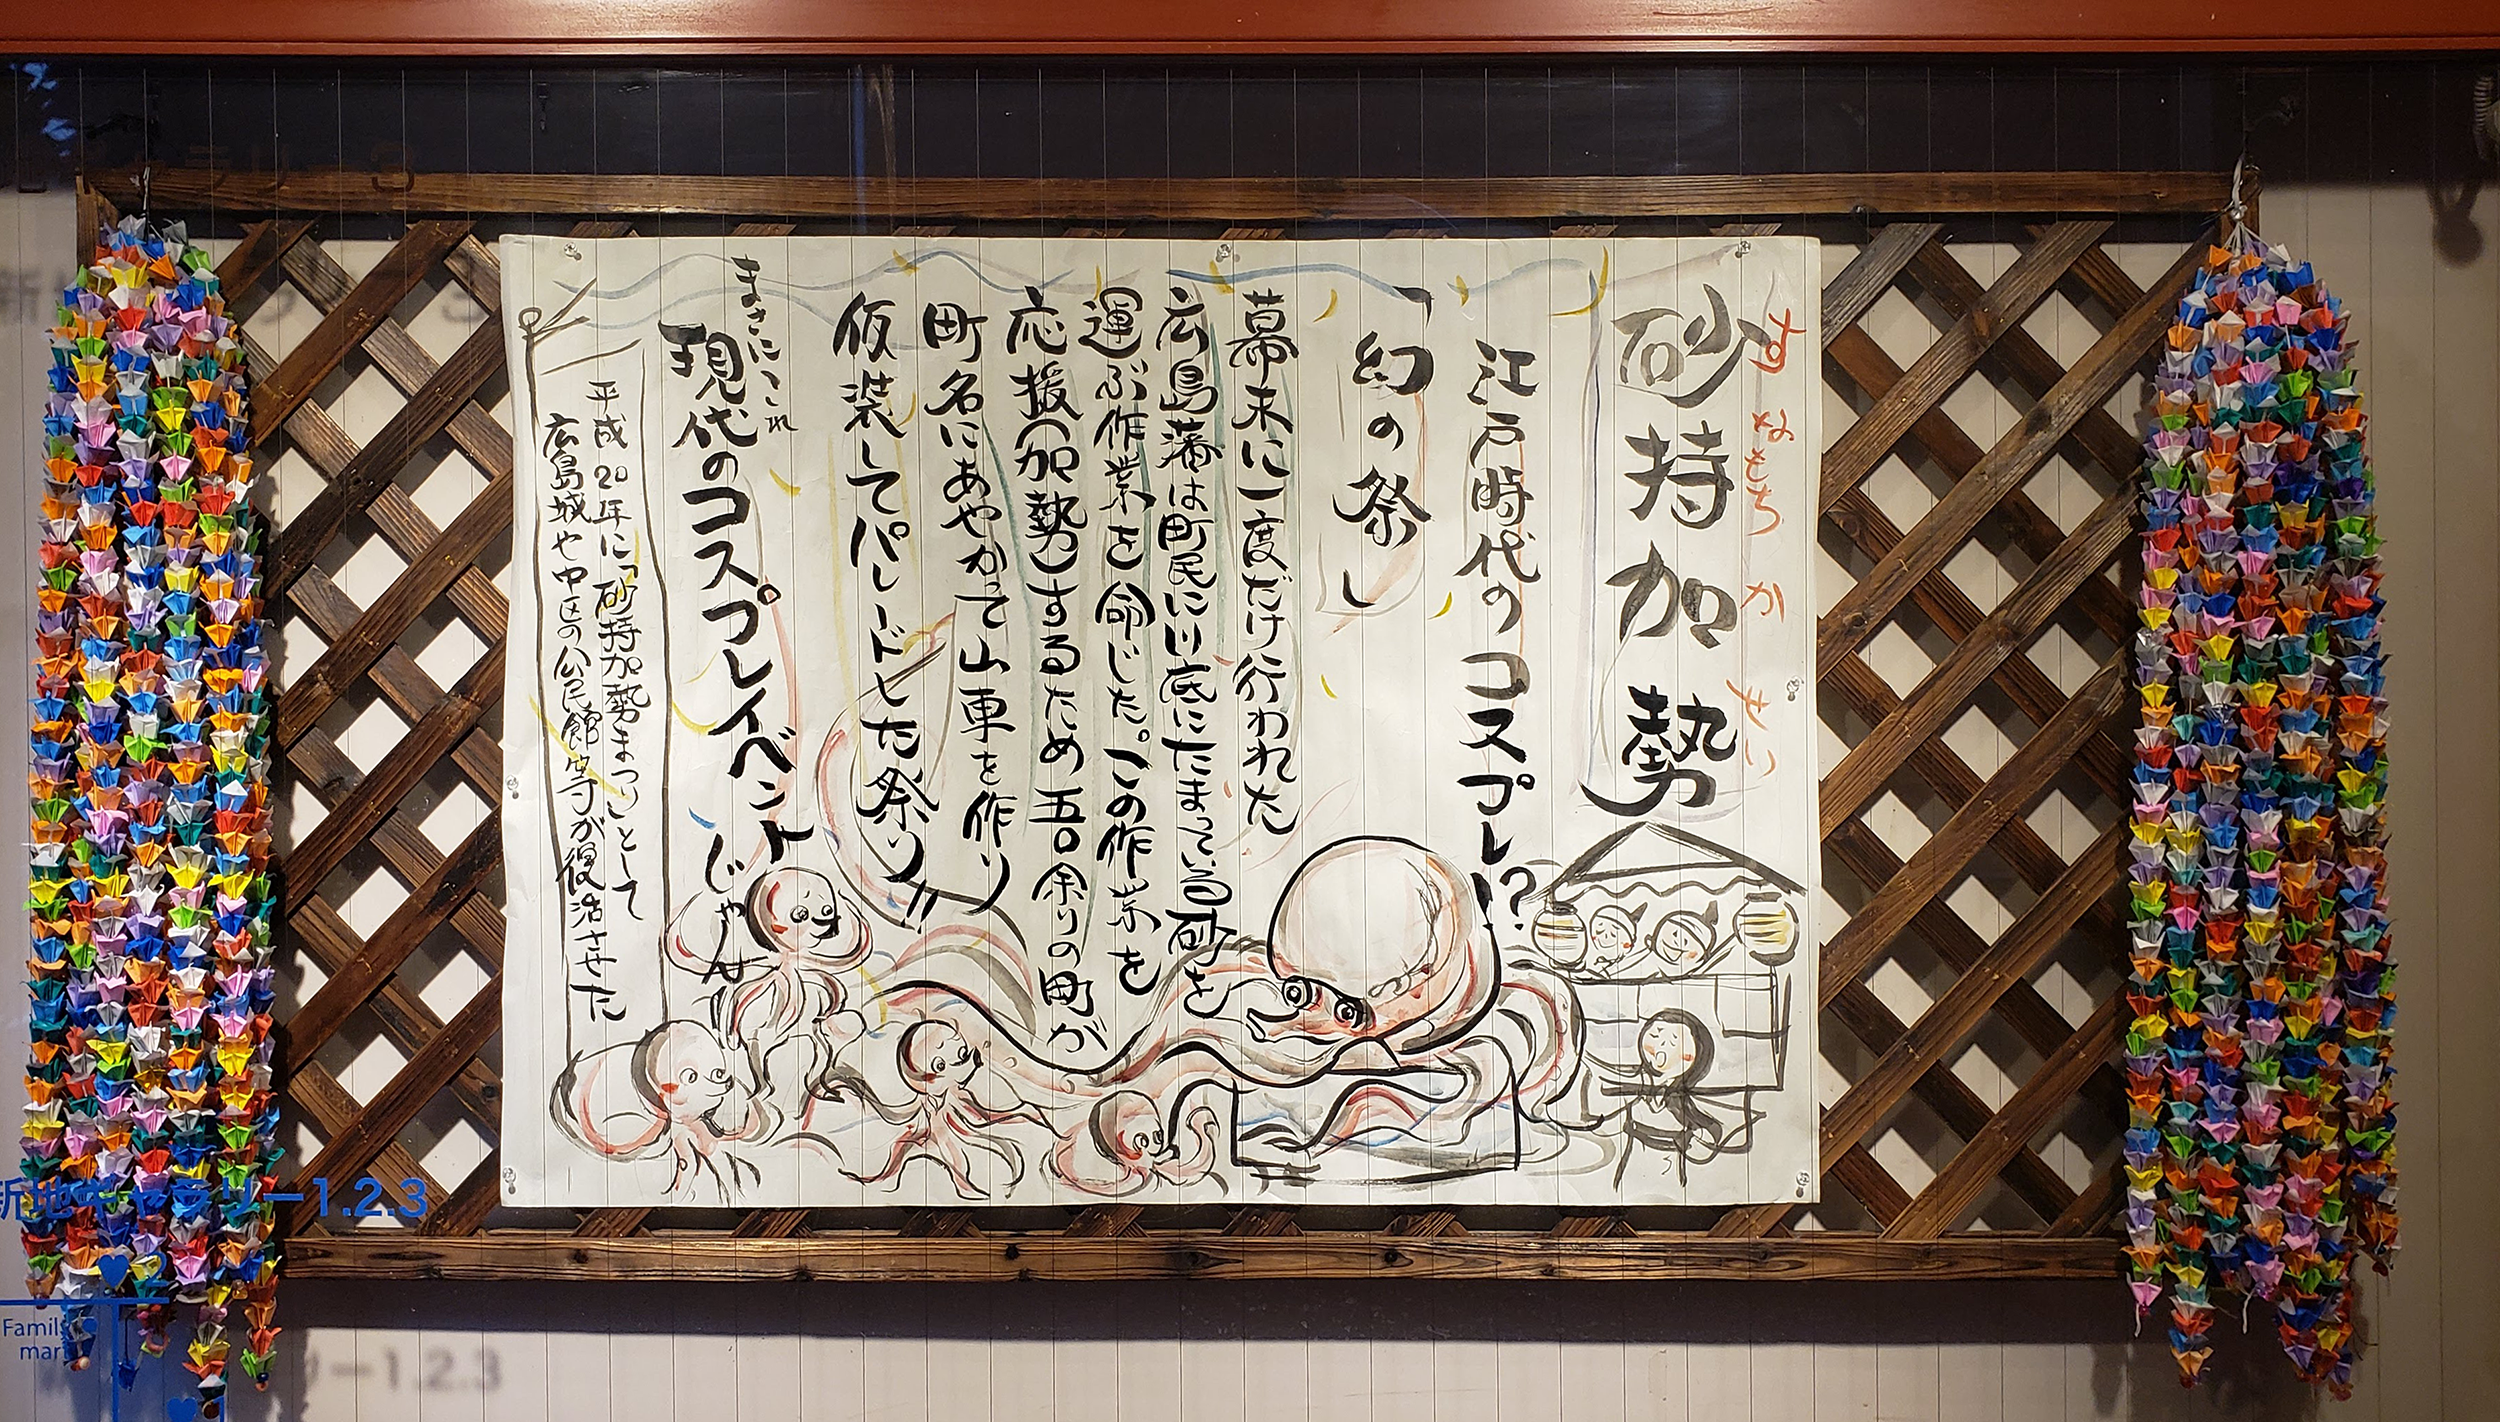 砂持加勢
すなもちかせい
江戸時代のコスプレ!?
「幻の祭」
幕末に一度だけ行われた
広島藩は町民に川底にたまっている砂を
運ぶ作業を命じた。この作業を
応援(加勢)するため五〇余りの町が
町名にあやかって山車を作り
仮装してパレードした祭り!!
まさにこれ
現代のコスプレイベントじゃん!!
平成20年に「砂持加勢まつり」として
広島城や中区の公民館等が復活させた
新地ギャラリー1.2.3
2
Family
mart